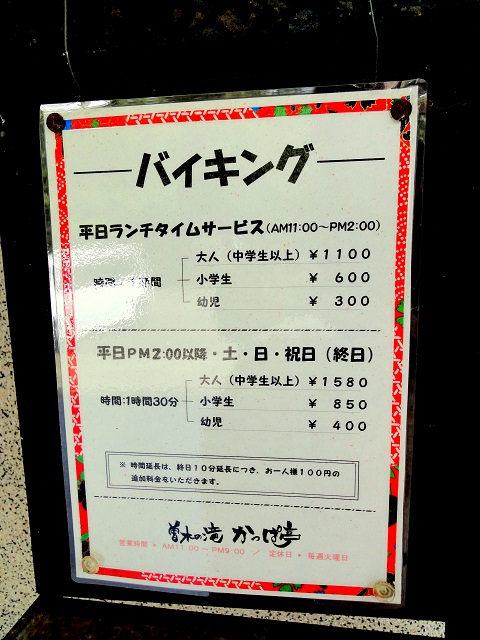 バイキング
平日ランチタイムサービス(AM11:00～PM2:00)
大人（中学生以上）￥1100
時間:1時間
小学生 ￥ 600
幼児 ￥ 300
平日PM2:00以降・土・日・祝日（終日）
大人（中学生以上）￥1580
時間:1時間30分
小学生 ￥ 850
幼児 ￥ 400
※ 時間延長は、終日10分延長につき、お一人様100円の
追加料金をいただきます。
曽木の滝 かっぱ亭
営業時間 * AM11:00～PM9:00 ／ 定休日 * 毎週火曜日